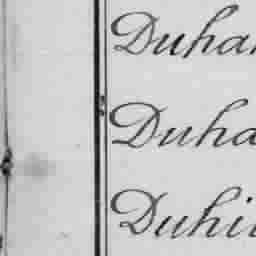 Duhan
Duha
Duhi